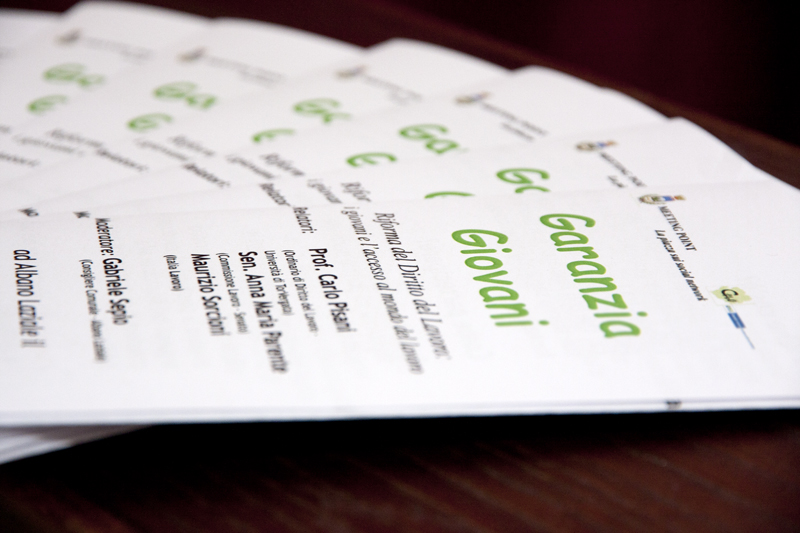 MEETING POINT
La piazza sul social network
Garanzia
Giovani
Riforma del Diritto del Lavoro:
i giovani e l'accesso al mondo del lavoro
Relatori:
Prof. Carlo Pisani
(Ordinario di Diritto del Lavoro -
Università di TorVergata)
Sen. Anna Maria Parente
(Commissione Lavoro - Senato)
Maurizio Sorcioni
(Italia Lavoro)
Moderatore: Gabriele Sepio
(Consigliere Comunale - Albano Laziale)
ad Albano Laziale il